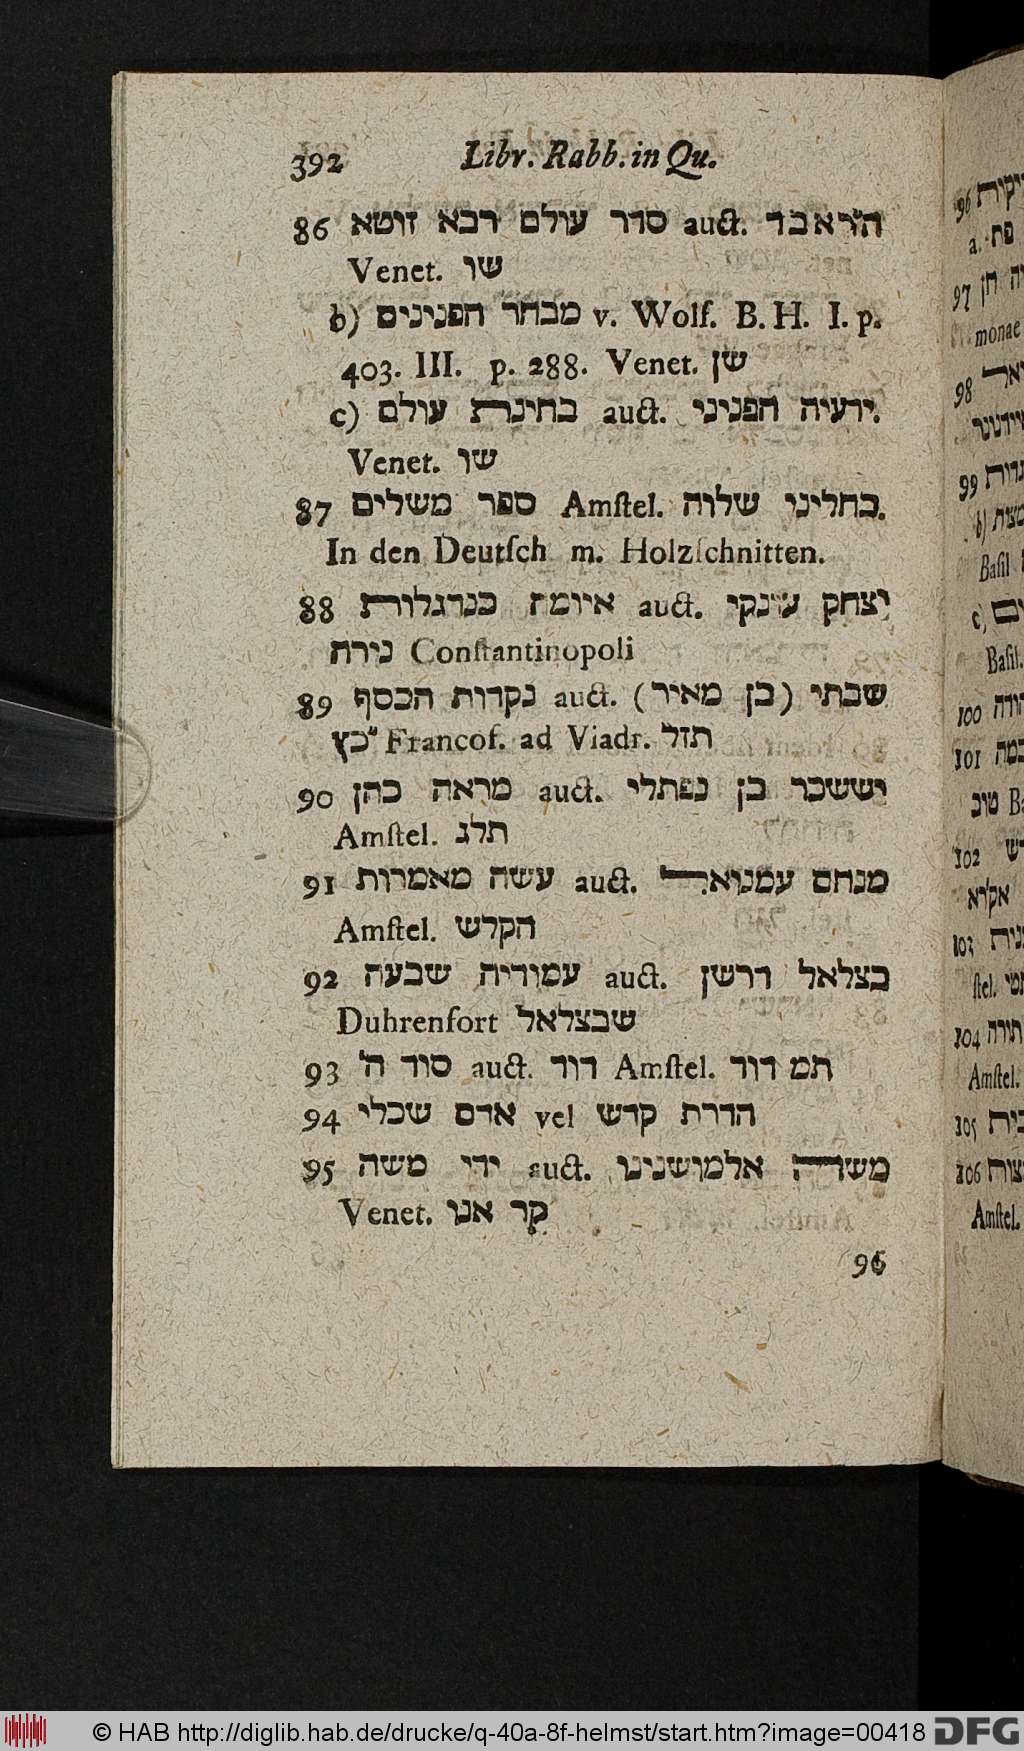 392 Libr. Rabb. in Qu.
86 סדר עולם רבא זוטא auct. הראבד
Venet. שו
b) מבחר הפנינים v. Wolf. B. H. I. p.
403. III. p. 288. Venet. שו
c) בחינרת עולם auct. ידעיה הפניני.
Venet. שו
87 ספר משלים Amstel. בחליני שלוה.
In den Deutsch m. Holzschnitten.
88 איומה כנרגלורת auct. יצחק ענקי
נירה Constantinopoli
89 נקדות הכסף auct. שבתי (בן מאיר)
כ״ץ Francof. ad Viadr. תזל
90 מראה כהן auct. יששכר בן נפתלי
Amstel. תלג
91 עשה מאמרות auct. מנחם עמנואל
Amstel. הקלש
92 עמודיה שבעה auct. בצלאל דרשן
Duhrenfort שבצלאל
93 סוד ה' auct. דוד Amstel. תם דוד
94 אדם שכלי vel הדרת קדש
95 ידי משה auct. משה אלמושנינו
Venet. קר אנו
96
96
a.
פת
97
חן
monae
98
99
b)
Basil
c)
Basil.
100
101
טוב
102
103
stel.
104
Amstel.
105
106
Amstel.
© HAB http://diglib.hab.de/drucke/q-40a-8f-helmst/start.htm?image=00418 DFG